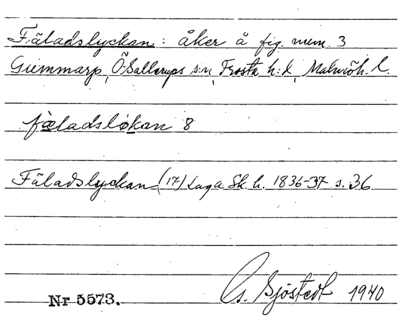 Fäladslyckan: åker å fig. num. 3
Gummarp, Ö Sallerups s:n, Frosta h:d, Malmöh. l.
fæladsløkan 8
Fäladslyckan (17) Laga Sk. h. 1836-37 s. 36
Nr 5573.
G. Sjöstedt 1940